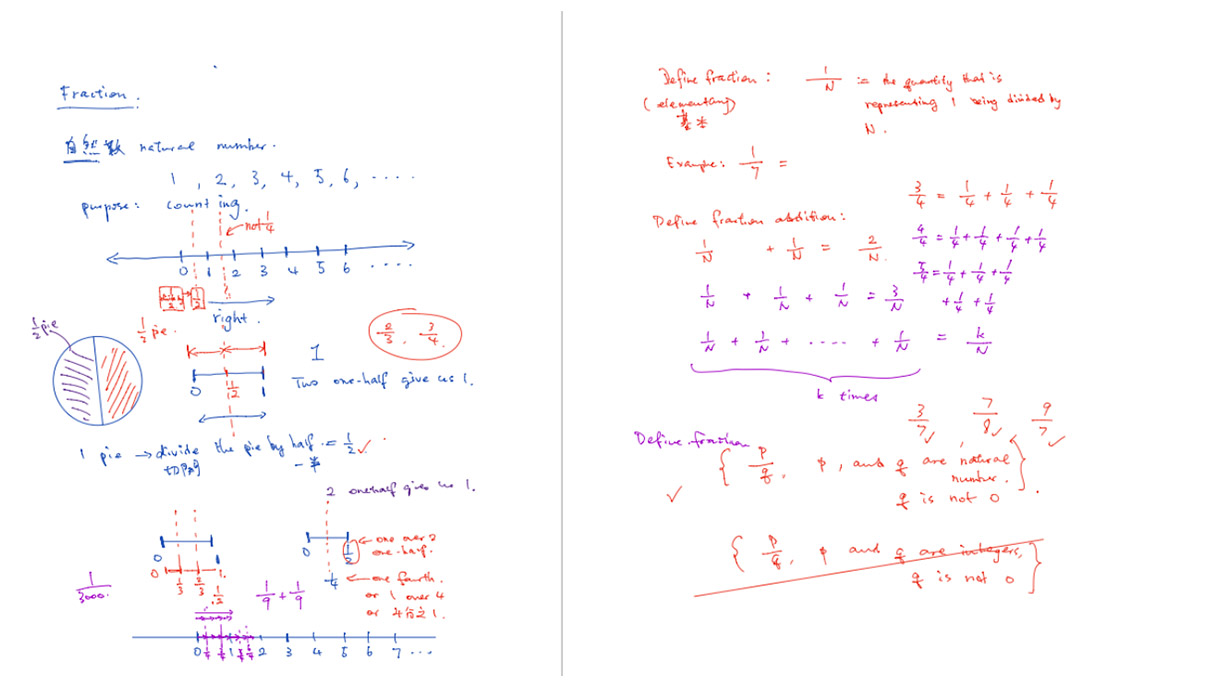 Fraction.
自然數 natural number.
1, 2, 3, 4, 5, 6, ....
purpose: counting.
not 1/4
0 1 2 3 4 5 6 ....
1/2
right.
1/2 pie
1/2 pie.
2/3, 3/4
1
0 1/2 1
Two one-half give us 1.
1 pie → divide the pie by half. = 1/2 ✓
一半
2 onehalf gives us 1.
0 1
0 1/3 2/3 1.
1/2
0 1/2 ← one over 2
one-half.
1/4 ← one fourth.
or 1 over 4
or 4分之1.
1/3000.
1/9 + 1/9
0 1 2 3 4 5 6 7 ...
Define fraction: 1/N := the quantity that is
(elementary) representing 1 being divided by
基本 N.
Example: 1/7 =
3/4 = 1/4 + 1/4 + 1/4
Define fraction abdition:
4/4 = 1/4 + 1/4 + 1/4 + 1/4
1/N + 1/N = 2/N.
5/4 = 1/4 + 1/4 + 1/4
+ 1/4 + 1/4
1/N + 1/N + 1/N = 3/N
1/N + 1/N + .... + 1/N = k/N
k times
3/7 ✓, 7/8 ✓ 9/7 ✓
Define fraction
{ p/q, p, and q are natural
number.
✓ q is not 0 }.
{ p/q, p and q are integers,
q is not 0 }